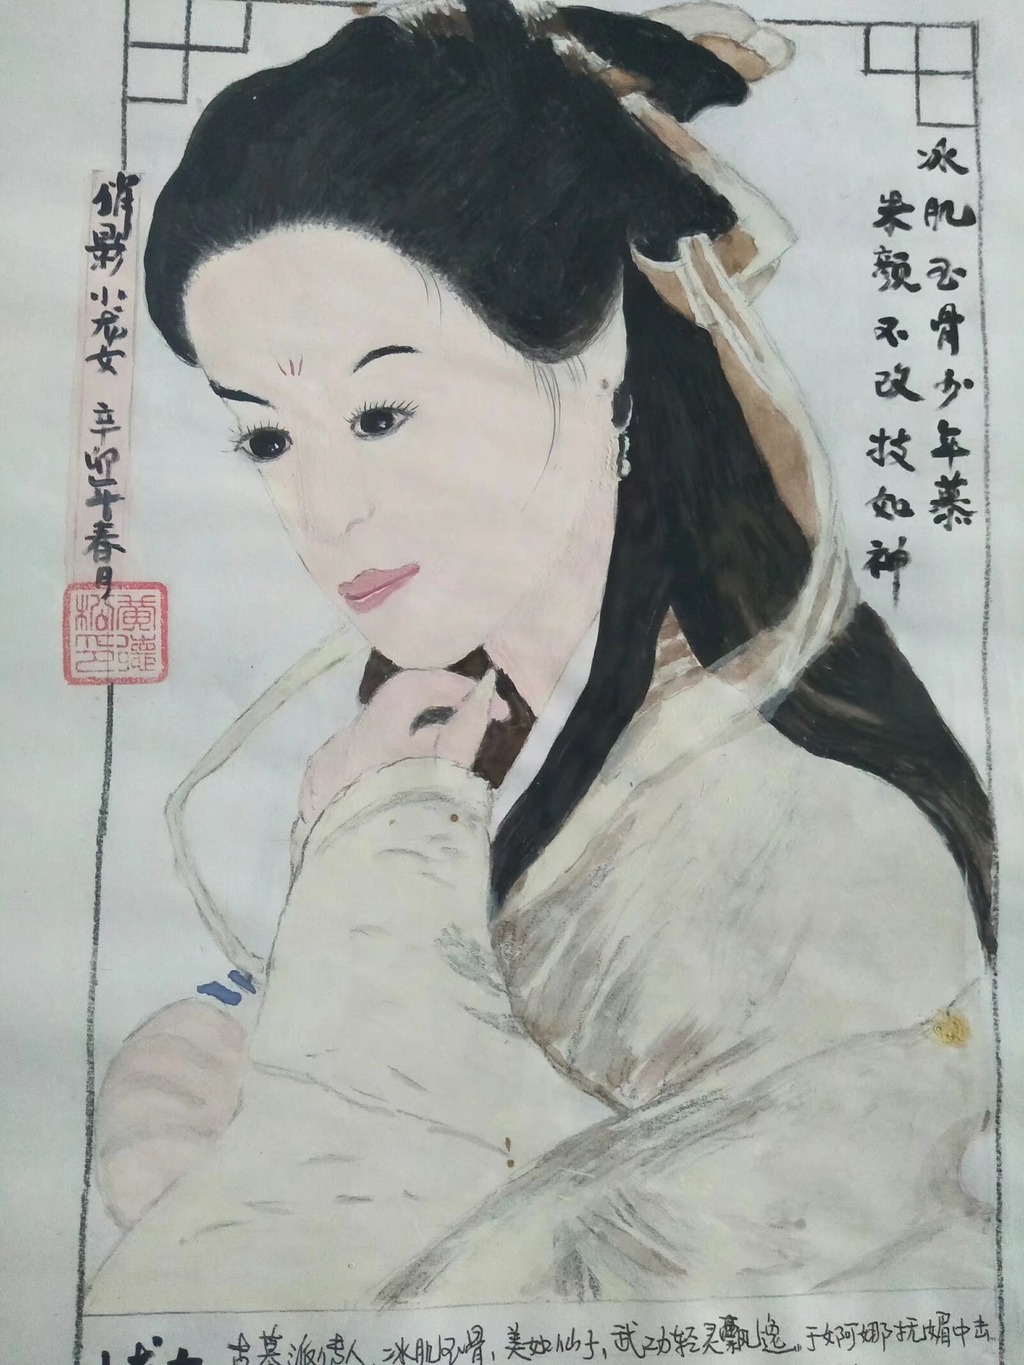 冰肌玉骨少年慕
朱颜不改技如神
俏影小龙女 辛卯年春月
古墓派传人，冰肌玉骨，美如仙子，武功轻灵飘逸。于婀娜抚媚中击